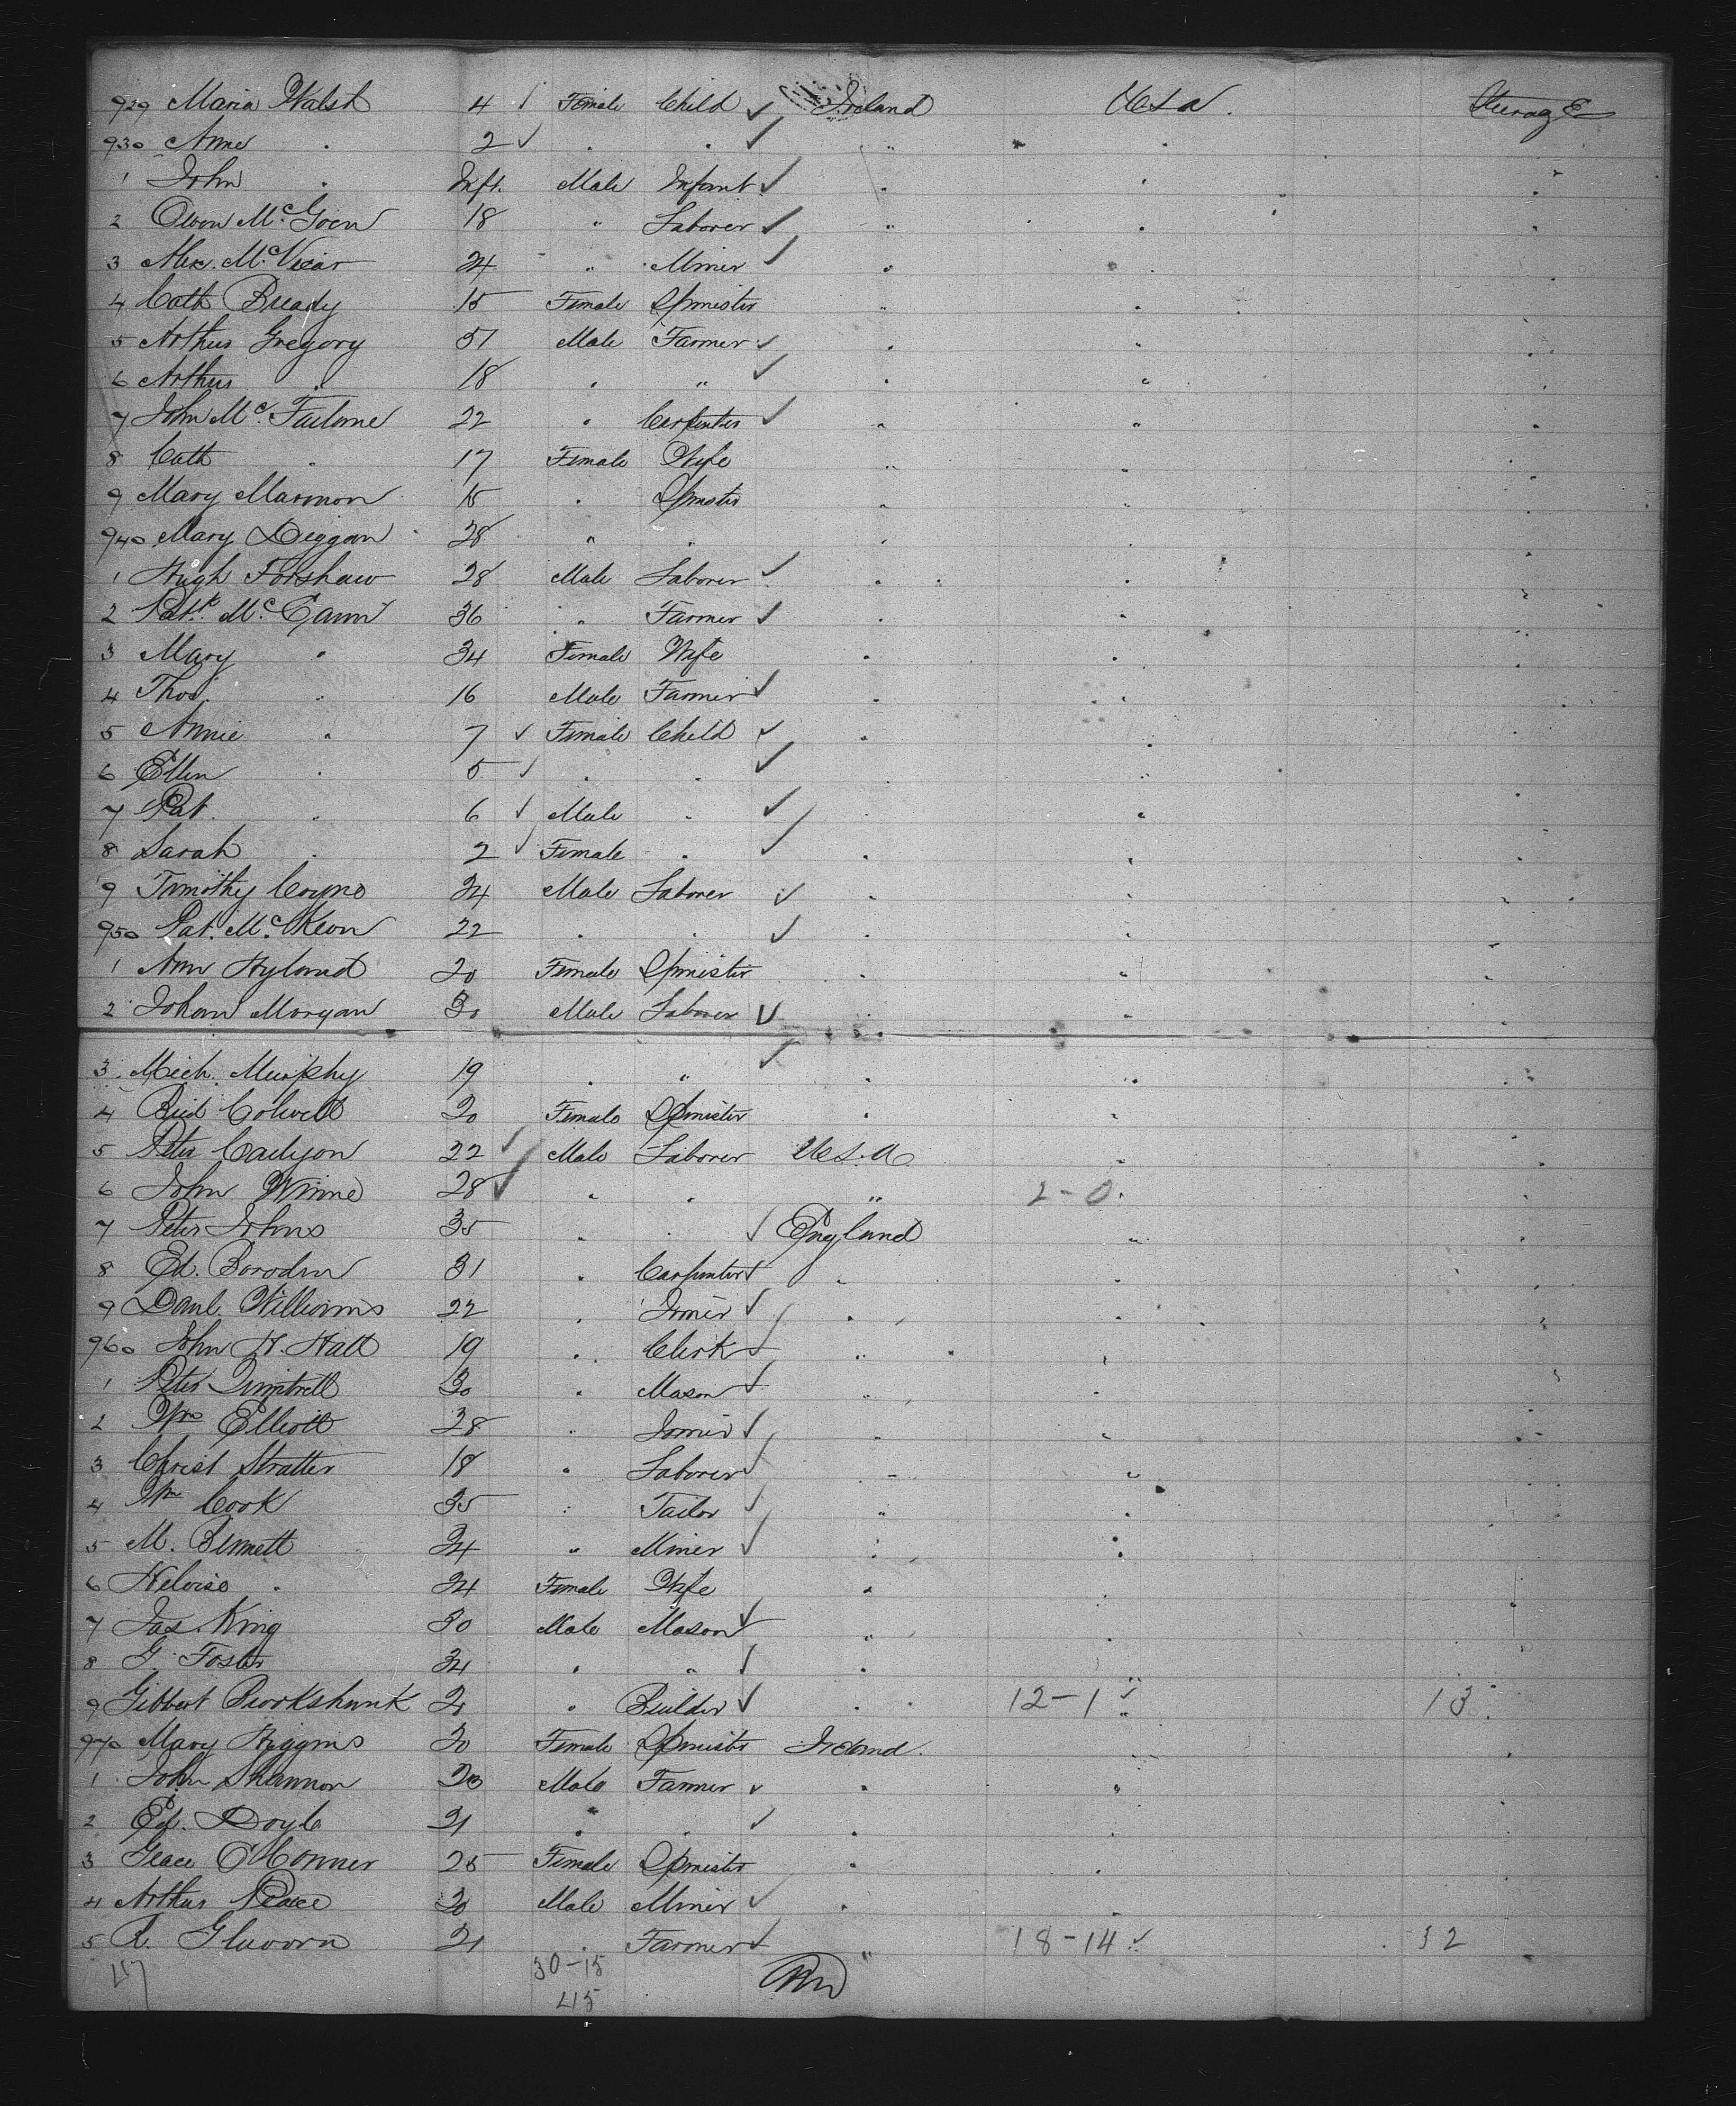 929 Maria Walsh 4 Female Child Ireland U S A Steerage
930 Anne " 2 " " " "
1 John " Inft. Male Infant " "
2 Owen McGoen 18 " Laborer " "
3 Alex. McVicar 24 " Miner " "
4 Cath Bready 15 Female Spinister " "
5 Arthur Gregory 51 Male Farmer " "
6 Arthur " 18 " " " "
7 John Mc 22 " Carpenter " "
8 Cath " 17 Female Wife " "
9 Mary Marmon 15 " Spinster " "
940 Mary Diggan 28 " " " "
1 Hugh Forshaw 28 Male Laborer " "
2 Patk. McCann 36 " Farmer " "
3 Mary " 34 Female Wife " "
4 Thos. " 16 Male Farmer " "
5 Annie " 7 Female Child " "
6 Ellen " 5 " " " "
7 Pat. " 6 Male " " "
8 Sarah " 2 Female " " "
9 Timothy Coyne 24 Male Laborer " "
950 Pat. McKeon 22 " " " "
1 Ann Hyland 20 Female Spinister " "
2 Johan Morgan 30 Male Laborer " "
3 Mich. Murphy 19 " " " "
4 Brid Colwell 20 Female Spinister " "
5 Peter 22 Male Laborer U S. A "
6 John Winne 28 " " " 2-0
7 Peter Johns 35 " " England "
8 Ed. Borodin 31 " Carpenter " "
9 Danl. Williams 22 " Joiner " "
960 John H. Hall 19 " Clerk " "
1 Peter 30 " Mason " "
2 Wm Elliott 28 " Joiner " "
3 Christ Stratter 18 " Laborer " "
4 Wm Cook 35 " Tailor " "
5 M. Bennett 24 " Miner " "
6 Heloise " 24 Female Wife " "
7 Jas. King 30 Male Mason " "
8 G. Foster 34 " " " "
9 Gibbert Brookshank " Builder " 12-1 " 13
970 Mary Higgins 20 Female Spinister Ireland. "
1 John Shannon 20 Male Farmer " "
2 Ed. Doyle 21 " " " "
3 Grace O'Conner 25 Female Spinister " "
4 Arthur Peace 20 Male Miner " "
5 21 " Farmer " 18-14 32
47 30-15
45